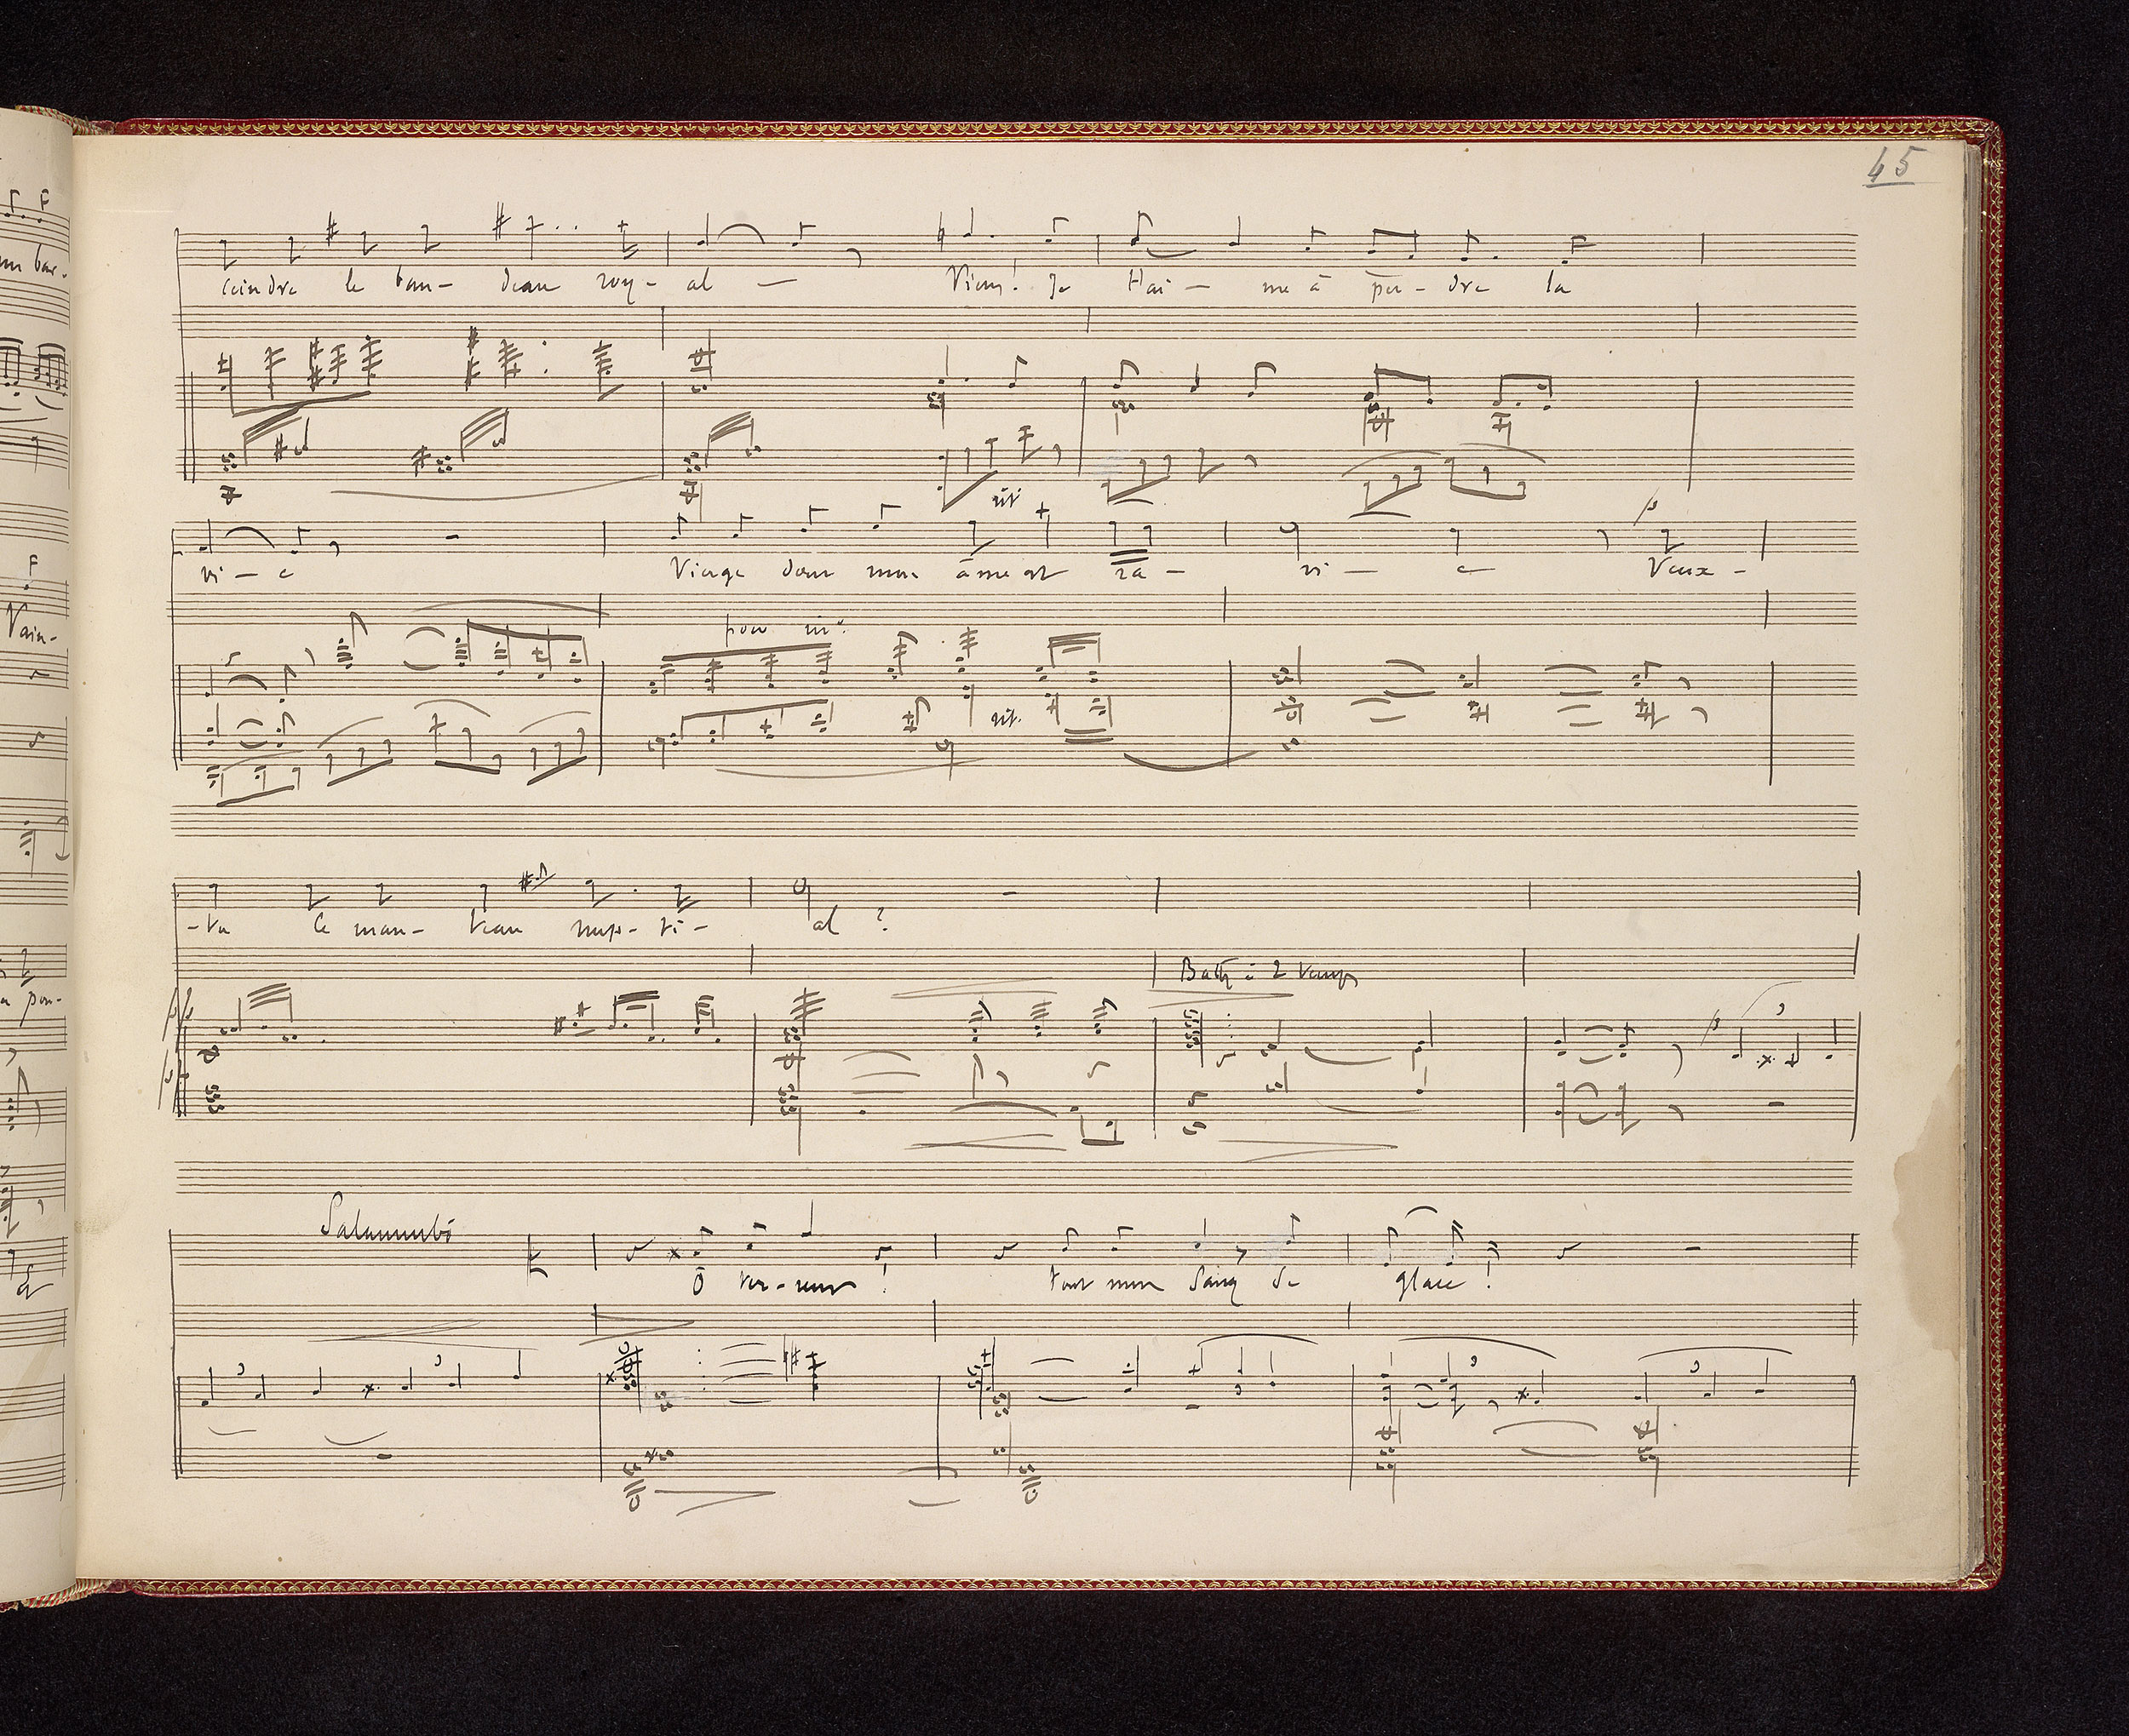 45
ceindre le ban- deau roy- al — Viens! Je t'ai- me à per- dre la
rit
vi - e Vierge dont mon âme est ra - vi - e Veux -
rit.
-tu le man- teau nup- ti- al ?
Battez à 2 temps
Salammbô
Ô ter-reur ! tout mon sang se glace !
Vain-